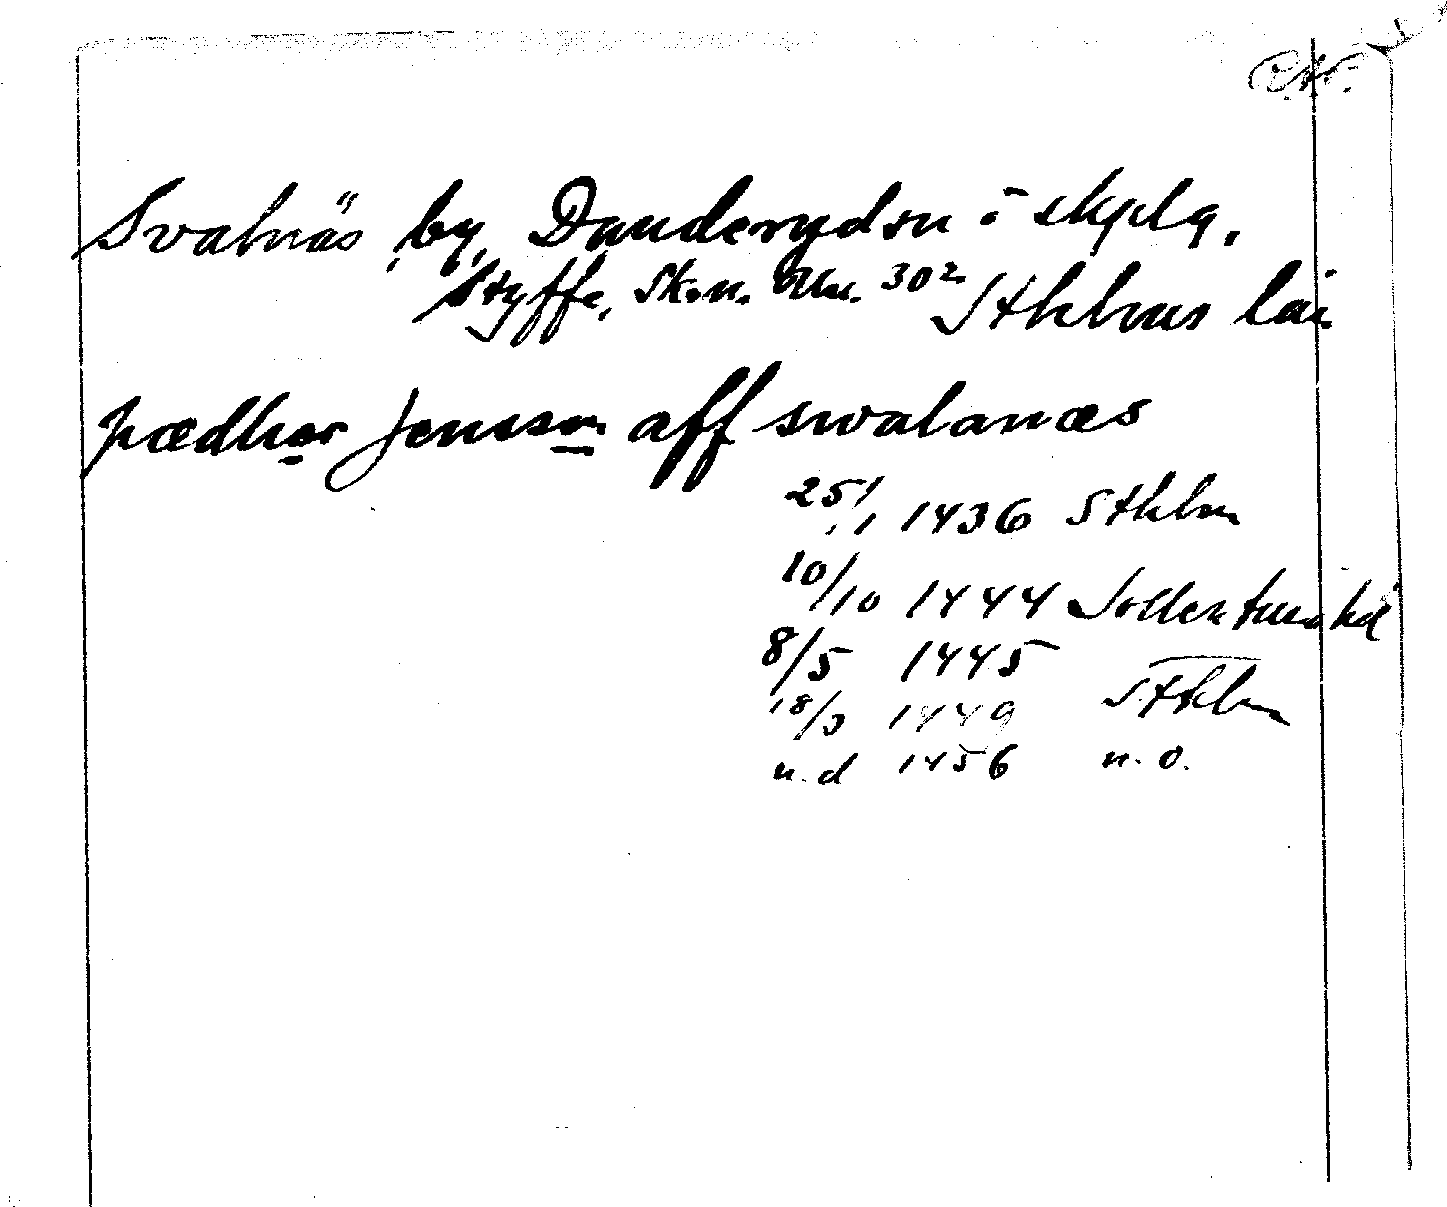 Svalnäs by, Danderyds sn i skplg.
Styffe, Sk. u. Un. 302 Sthlms län
pædher jensson aff swalanæs
25/1 1436 Sthlm
10/10 1444 Sollentuna hd
8/5 1445
18/3 1449 Sthlm
u.d 1456 u.o.